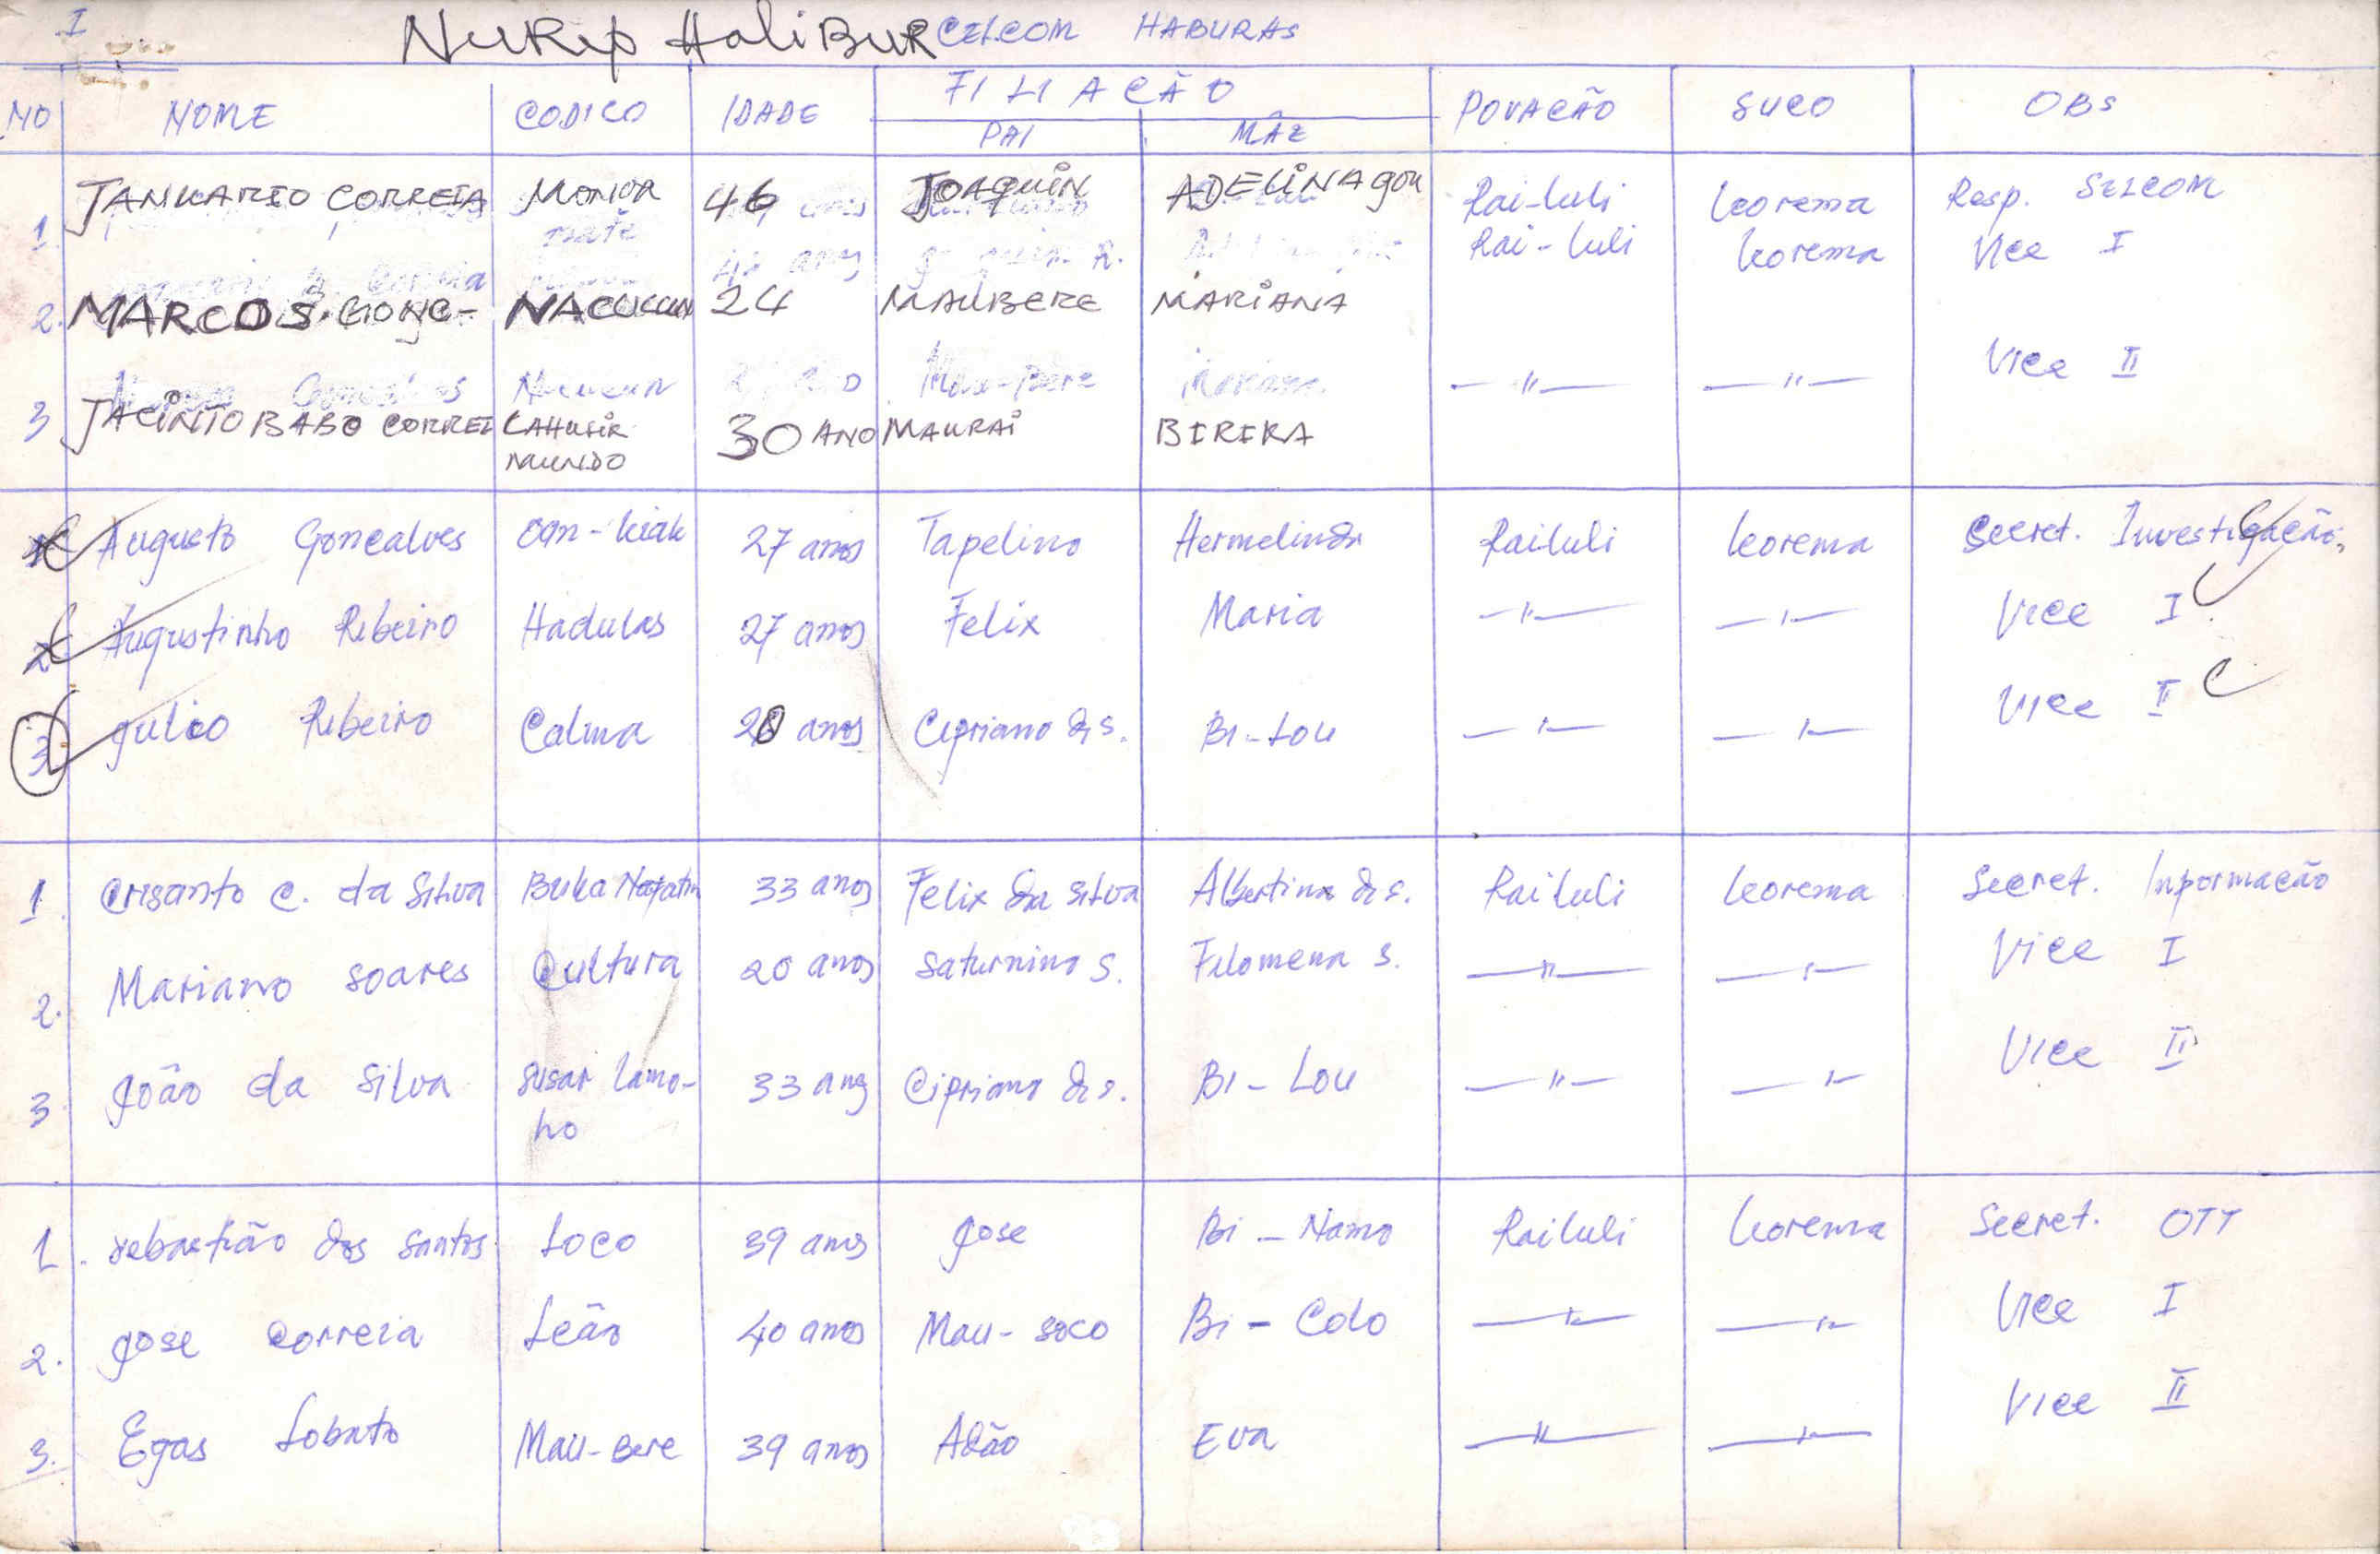 I
NUREP HALIBUR CELCOM HABURAS
NO NOME CODICO IDADE FILIACÃO POVACÃO SUCO OBS
PAI MÃE
1. JANUARIO CORREIA 46 JOAQUIN ADELINA GON Rai-luli leorema Resp. SELCOM
Rai-luli leorema Vice I
2. MARCOS. GONC- 24 MAUBERE MARIANA
—"— —"— Vice II
3 JACINTO BABO CORREI LAHUSIR 30 ANO MAURAI BIRIKA
MUNDO
1 Augusto Goncalves 27 anos Tapelino Hermelinda Railuli leorema Secret. Investigacão
2 Augustinho Ribeiro Hadulas 27 anos Felix Maria —"— —"— Vice I
3 Julio Ribeiro Calma 28 anos Cipriano da s. Bi-Lou —"— —"— Vice II
1. Crisanto C. da Silva Buka 33 anos Felix da Silva Albertina da s. Railuli leorema Secret. Informacão
2. Mariano Soares Cultura 20 anos Saturnino S. Filomena S. —"— —"— Vice I
3 João da Silva Susar lamo- 33 anos Cipriano da s. Bi-Lou —"— —"— Vice II
ho
1. Sebastião dos Santos Loco 39 anos Jose Bi-Namo Railuli leorema Secret. OTT
2. Jose Correia Leão 40 anos Mau-soco Bi-Colo —"— —"— Vice I
3. Egas Lobato Mau-Bere 39 anos Adão Eva —"— —"— Vice II